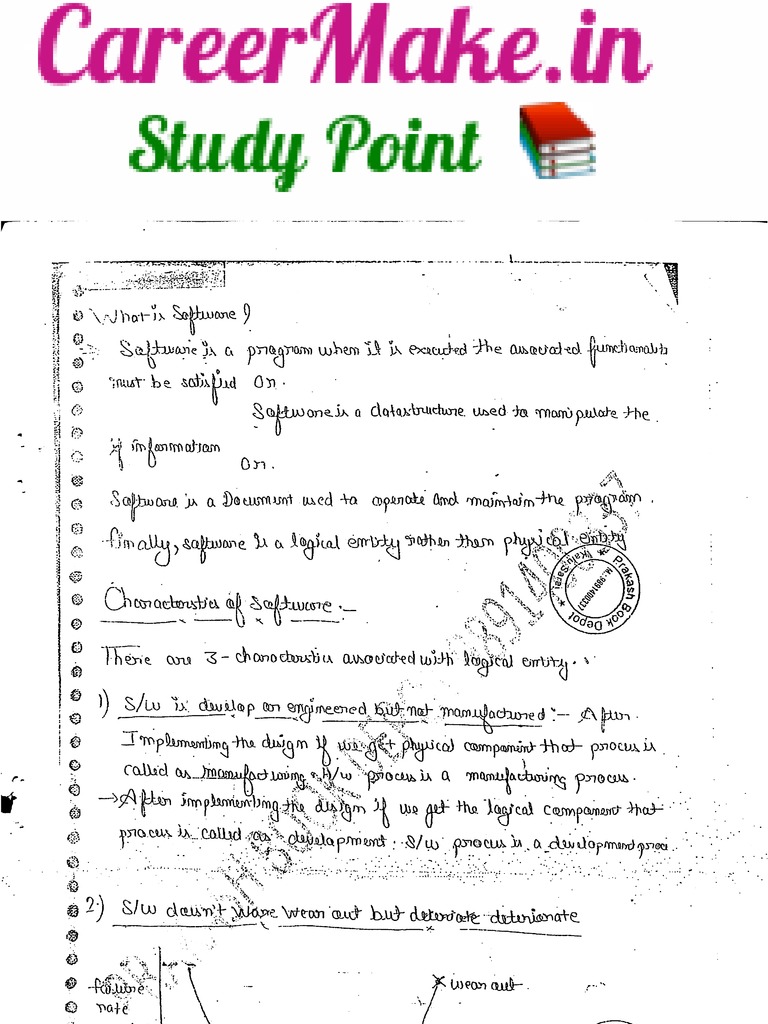 CareerMake.in
Study Point
What is Software?
Software is a program when it is executed the associated functionalit
must be satisfied or.
Software is a datastructure used to manipulate the
information
or.
Software is a Document used to operate and maintain the program.
finally, software is a logical entity rather them physical entity
Characterstics of Software:-
There are 3-characterstics associated with logical entity.
1) S/W is develop or engineered but not manufactured:- After
Implementing the design if we get physical component that process is
called as manufacturing. H/w process is a manufacturing process.
→ After implementing the design if we get the logical component that
process is called as development. S/W process is a development proce
2.) S/W doesn't ware wear out but deteriate deterionate
failure
rate
wear out
Prakash Book Depot
(Kalu Sarai)